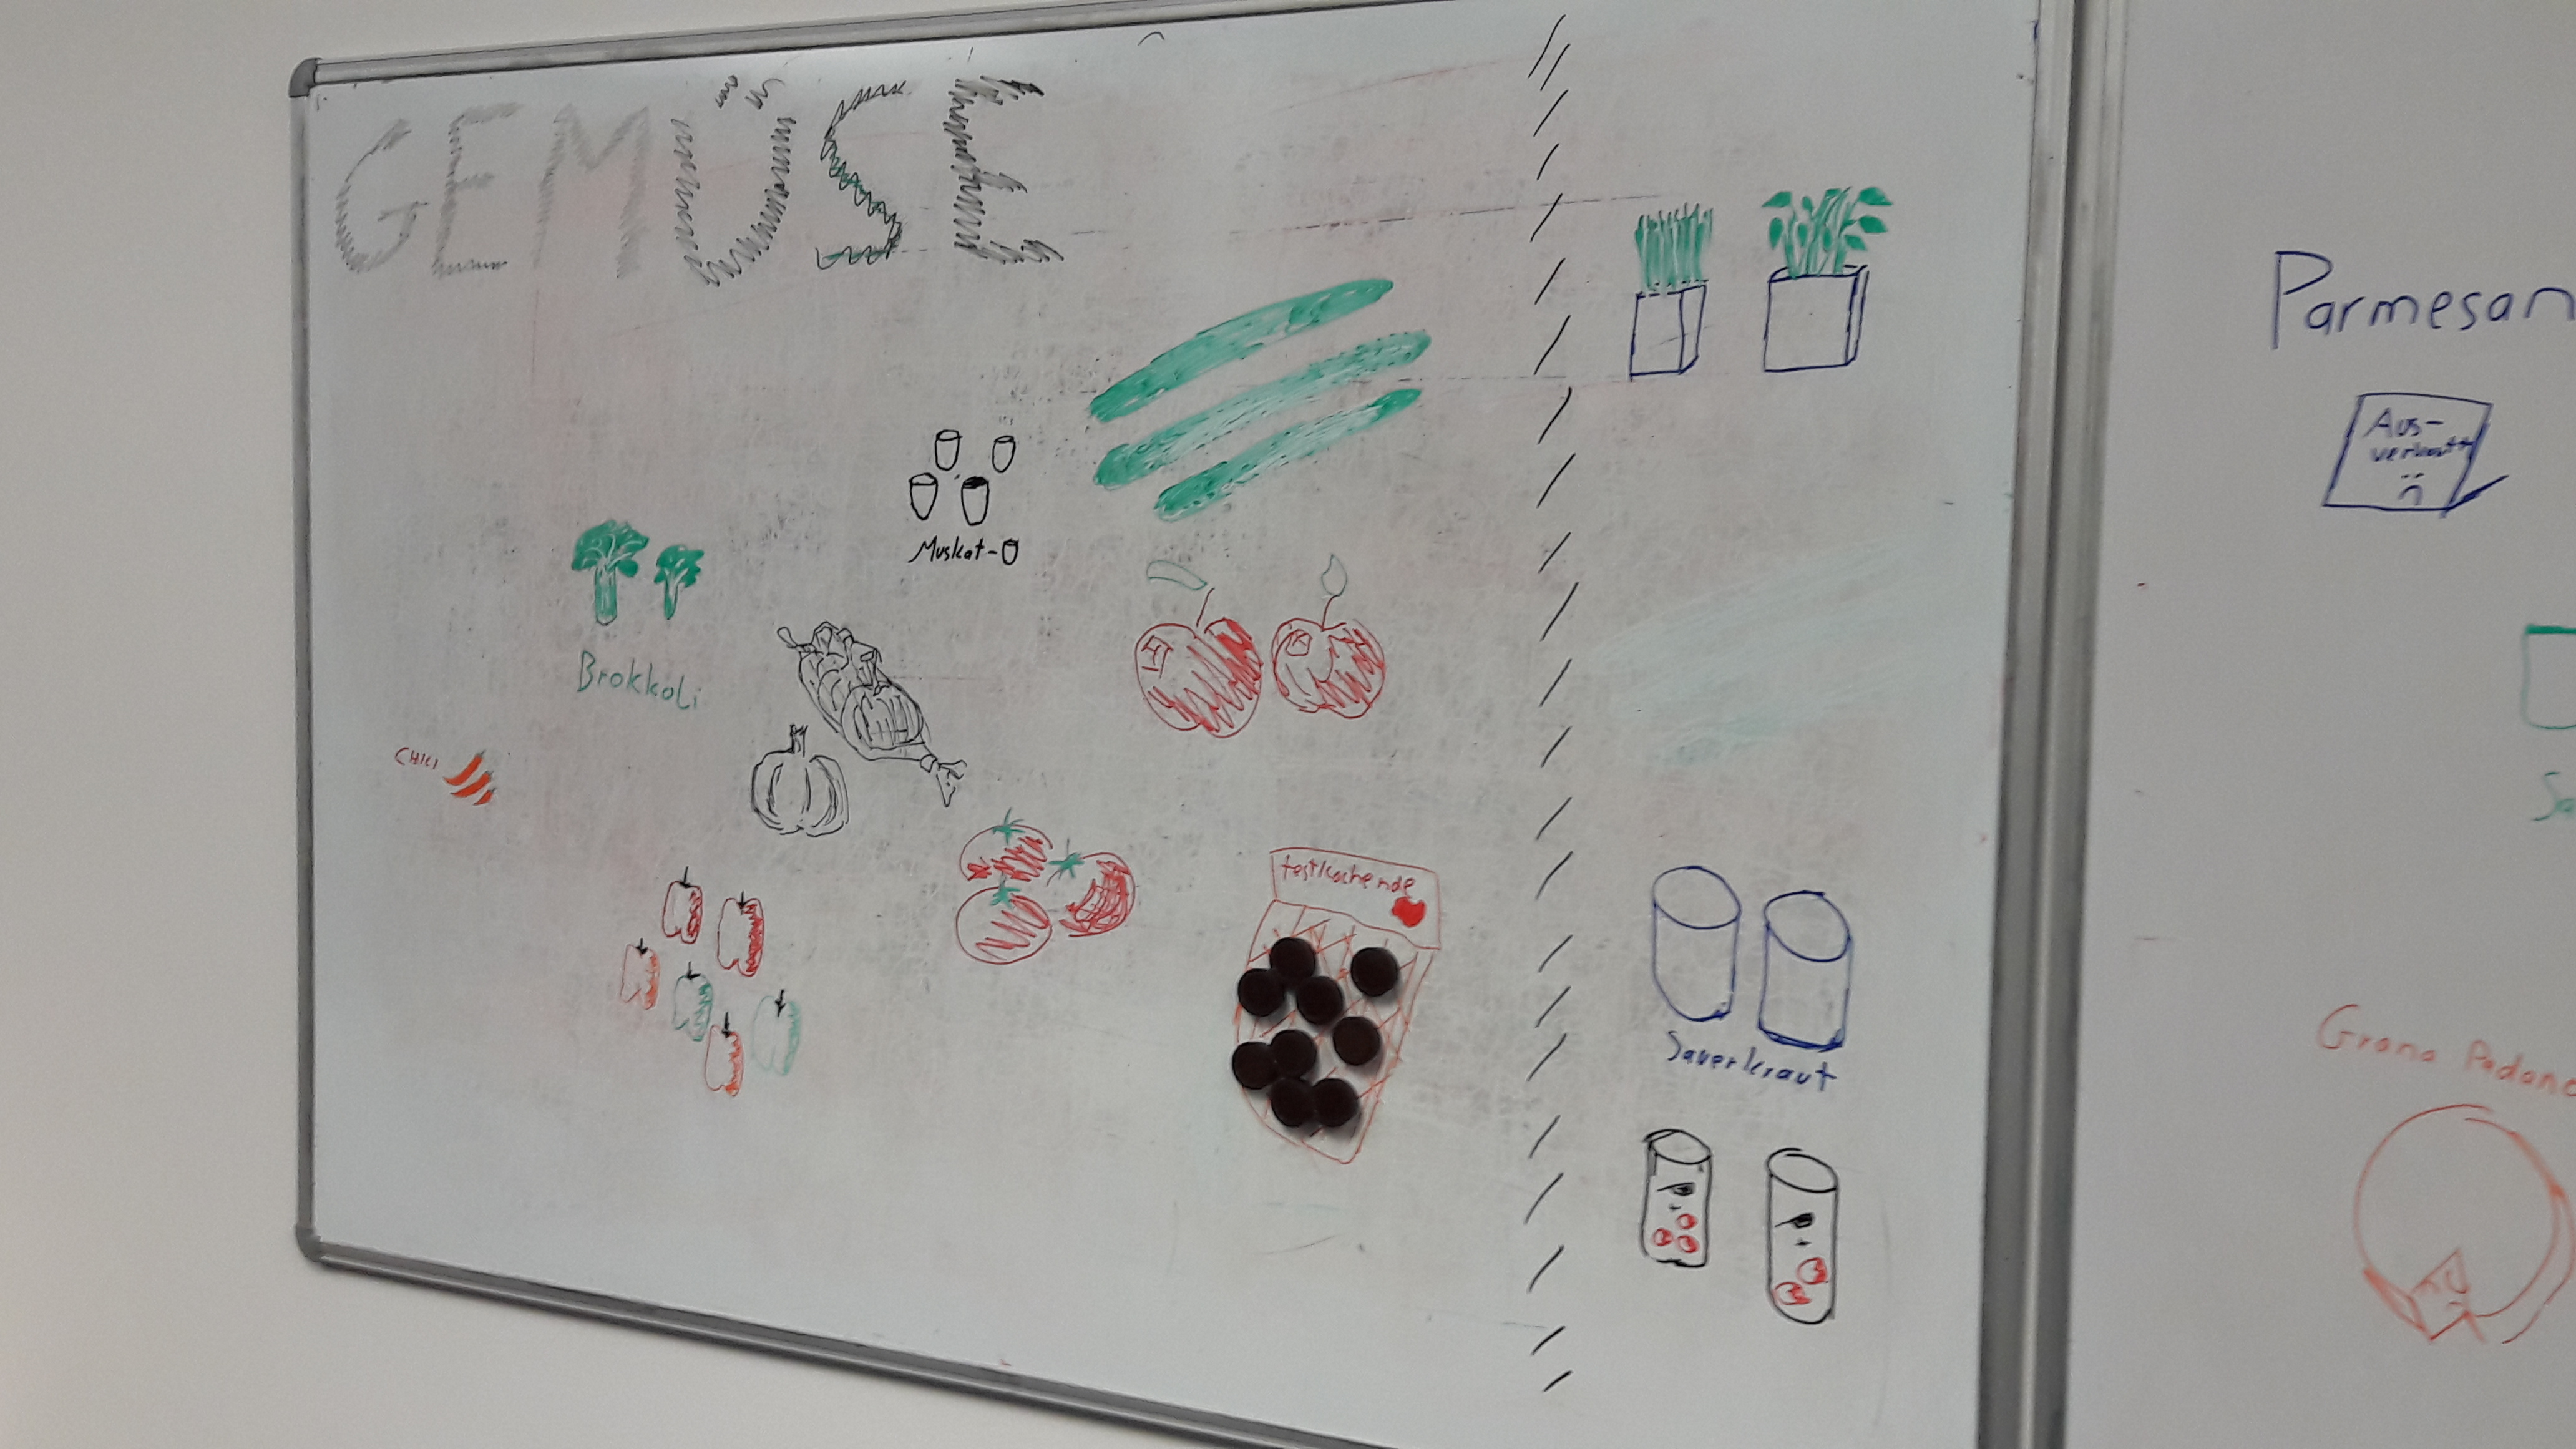 GEMÜSE
Muskat-
Brokkoli
CHILI
festkochende
Sauerkraut
Parmesan
Aus-
verkauft
Grana Padano